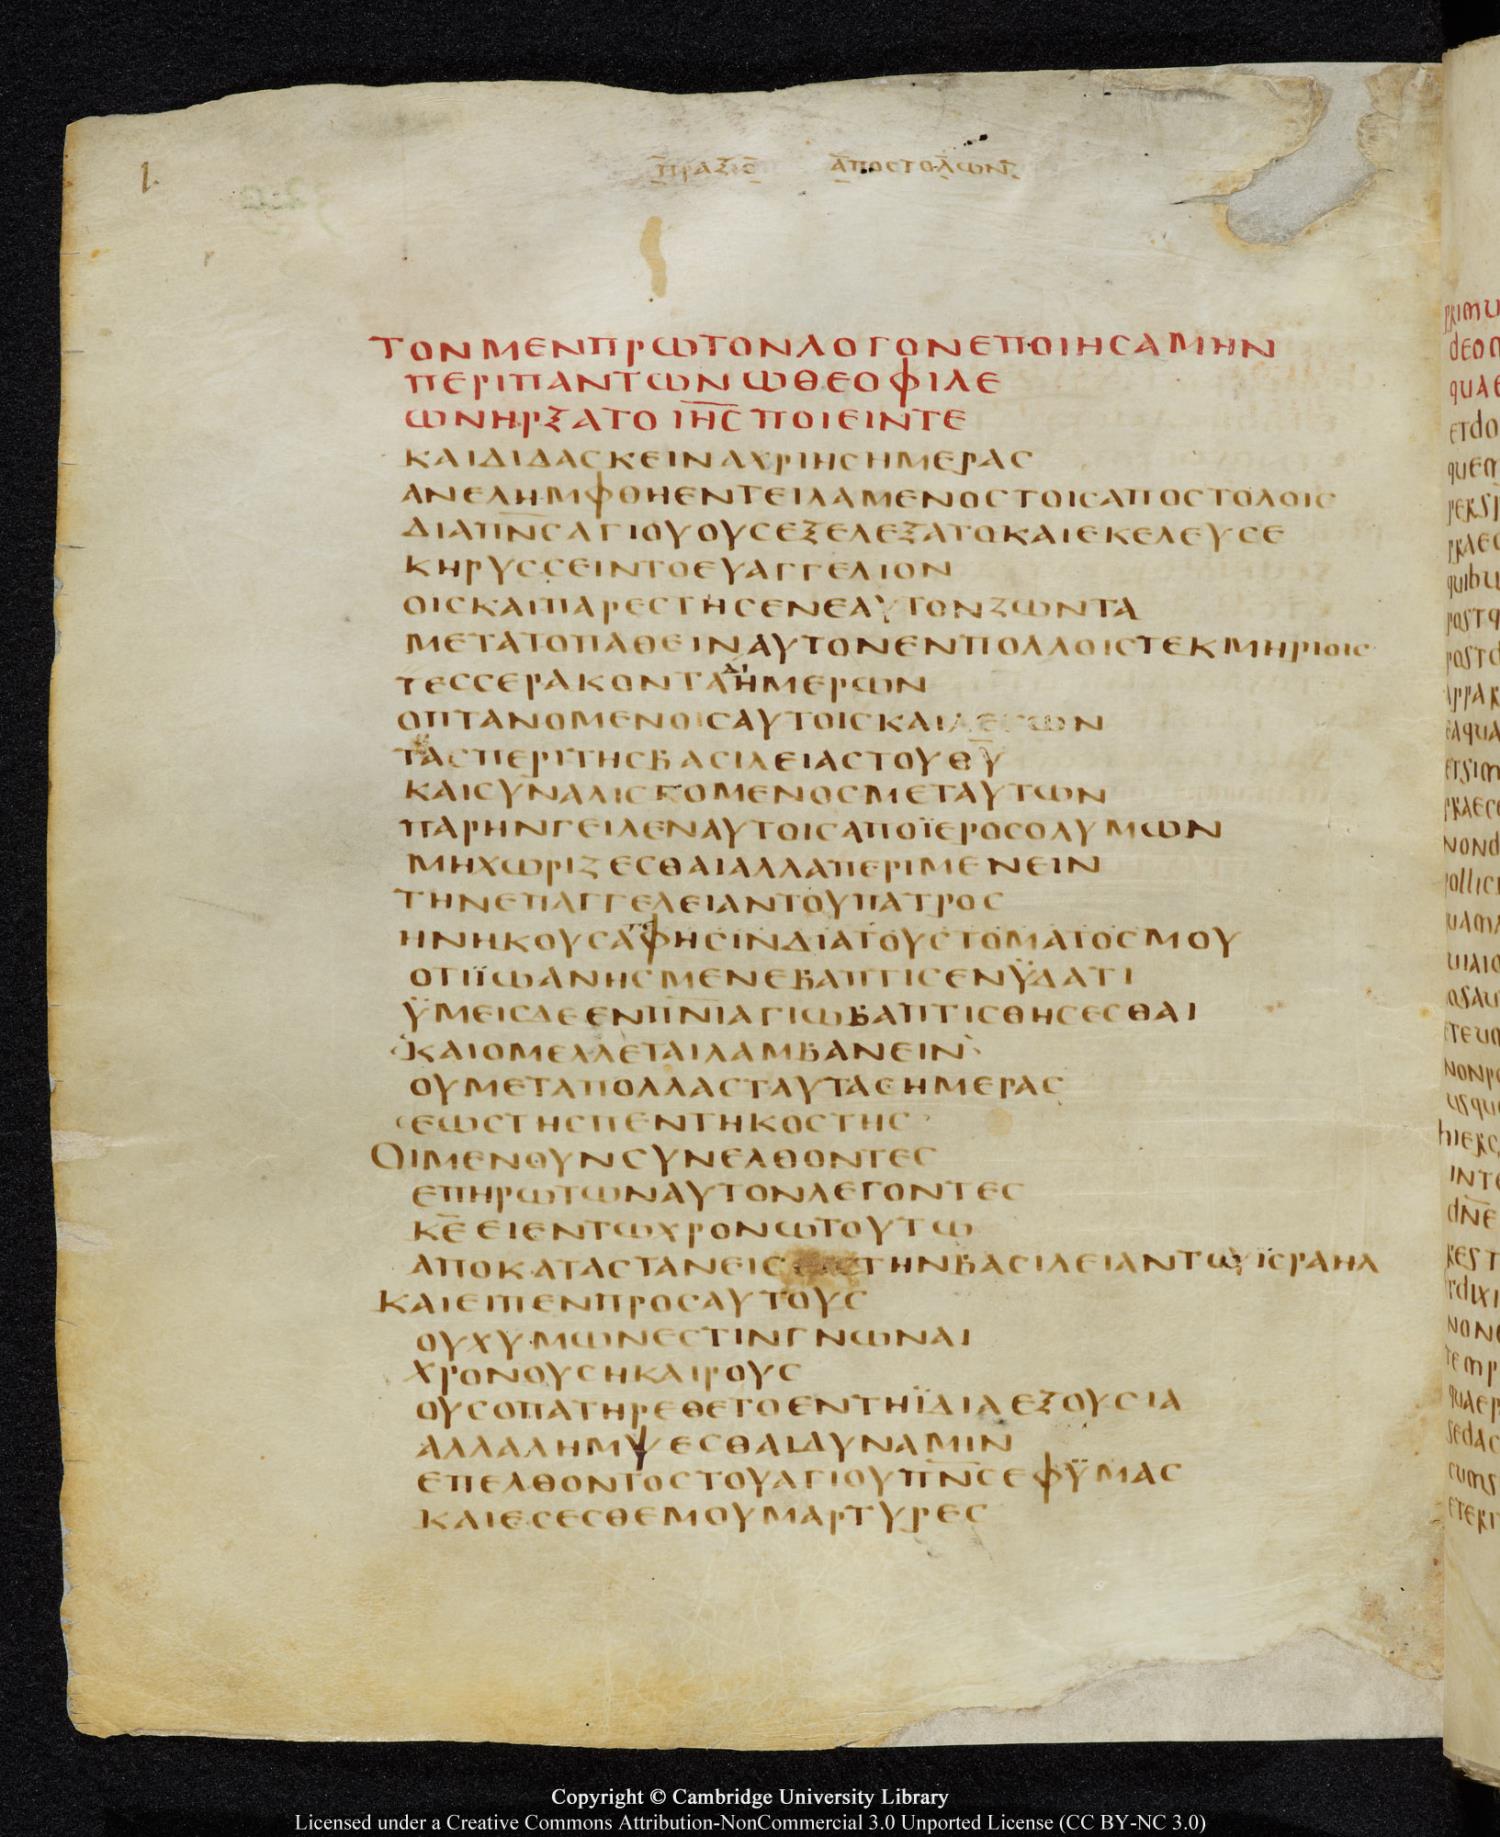 1
ΠΡΑΞΙΣ ΑΠΟΣΤΟΛΩΝ
ΤΟΝΜΕΝΠΡΩΤΟΝΛΟΓΟΝΕΠΟΙΗΣΑΜΗΝ
ΠΕΡΙΠΑΝΤΩΝΩΘΕΟΦΙΛΕ
ΩΝΗΡΞΑΤΟΙΗΣΠΟΙΕΙΝΤΕ
ΚΑΙΔΙΔΑΣΚΕΙΝΑΧΡΙΗΣΗΜΕΡΑΣ
ΑΝΕΛΗΜΦΘΗΕΝΤΕΙΛΑΜΕΝΟΣΤΟΙΣΑΠΟΣΤΟΛΟΙΣ
ΔΙΑΠΝΣΑΓΙΟΥΟΥΣΕΞΕΛΕΞΑΤΟΚΑΙΕΚΕΛΕΥΣΕ
ΚΗΡΥΣΣΕΙΝΤΟΕΥΑΓΓΕΛΙΟΝ
ΟΙΣΚΑΙΠΑΡΕΣΤΗΣΕΝΕΑΥΤΟΝΖΩΝΤΑ
ΜΕΤΑΤΟΠΑΘΕΙΝΑΥΤΟΝΕΝΠΟΛΛΟΙΣΤΕΚΜΗΡΙΟΙΣ
ΤΕΣΣΕΡΑΚΟΝΤΑΗΜΕΡΩΝ
ΟΠΤΑΝΟΜΕΝΟΙΣΑΥΤΟΙΣΚΑΙΛΕΓΩΝ
ΤΑΣΠΕΡΙΤΗΣΒΑΣΙΛΕΙΑΣΤΟΥΘΥ
ΚΑΙΣΥΝΑΛΙΣΚΟΜΕΝΟΣΜΕΤΑΥΤΩΝ
ΠΑΡΗΝΓΕΙΛΕΝΑΥΤΟΙΣΑΠΟΪΕΡΟΣΟΛΥΜΩΝ
ΜΗΧΩΡΙΖΕΣΘΑΙΑΛΛΑΠΕΡΙΜΕΝΕΙΝ
ΤΗΝΕΠΑΓΓΕΛΕΙΑΝΤΟΥΠΑΤΡΟΣ
ΗΝΗΚΟΥΣΑΦΗΣΙΝΔΙΑΤΟΥΣΤΟΜΑΤΟΣΜΟΥ
ΟΤΙΪΩΑΝΗΣΜΕΝΕΒΑΠΤΙΣΕΝΫΔΑΤΙ
ΫΜΕΙΣΔΕΕΝΠΝΙΑΓΙΩΒΑΠΤΙΣΘΗΣΕΣΘΑΙ
ΚΑΙΟΜΕΛΛΕΤΑΙΛΑΜΒΑΝΕΙΝ
ΟΥΜΕΤΑΠΟΛΛΑΣΤΑΥΤΑΣΗΜΕΡΑΣ
ΕΩΣΤΗΣΠΕΝΤΗΚΟΣΤΗΣ
ΟΙΜΕΝΟΥΝΣΥΝΕΛΘΟΝΤΕΣ
ΕΠΗΡΩΤΩΝΑΥΤΟΝΛΕΓΟΝΤΕΣ
ΚΕΕΙΕΝΤΩΧΡΟΝΩΤΟΥΤΩ
ΑΠΟΚΑΤΑΣΤΑΝΕΙΣΕΙΣΤΗΝΒΑΣΙΛΕΙΑΝΤΟΥΪΣΡΑΗΛ
ΚΑΙΕΙΠΕΝΠΡΟΣΑΥΤΟΥΣ
ΟΥΧΥΜΩΝΕΣΤΙΝΓΝΩΝΑΙ
ΧΡΟΝΟΥΣΗΚΑΙΡΟΥΣ
ΟΥΣΟΠΑΤΗΡΕΘΕΤΟΕΝΤΗΪΔΙΑΕΞΟΥΣΙΑ
ΑΛΛΑΛΗΜΨΕΣΘΑΙΔΥΝΑΜΙΝ
ΕΠΕΛΘΟΝΤΟΣΤΟΥΑΓΙΟΥΠΝΣΕΦΫΜΑΣ
ΚΑΙΕΣΕΣΘΕΜΟΥΜΑΡΤΥΡΕΣ
Copyright © Cambridge University Library
Licensed under a Creative Commons Attribution-NonCommercial 3.0 Unported License (CC BY-NC 3.0)